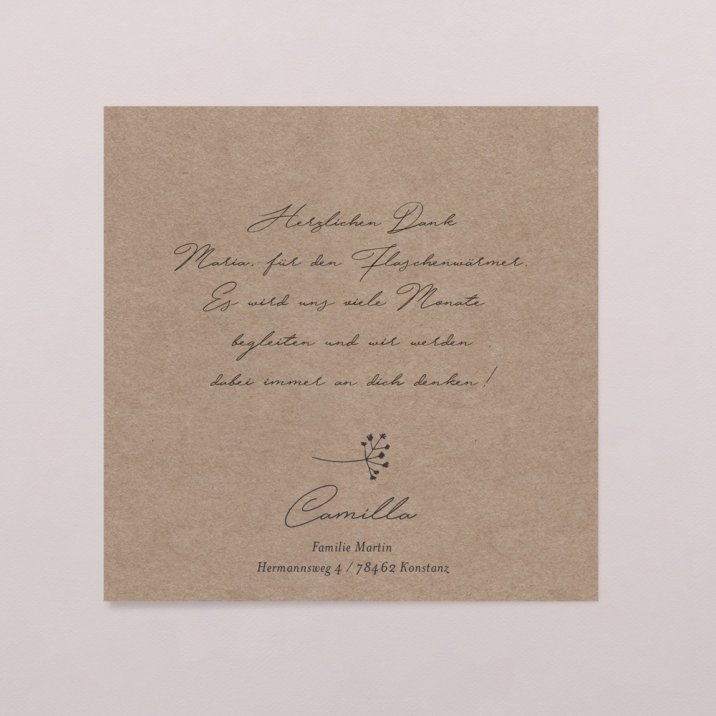 Herzlichen Dank
Maria, für den Flaschenwärmer.
Es wird uns viele Monate
begleiten und wir werden
dabei immer an dich denken!
Camilla
Familie Martin
Hermannsweg 4 / 78462 Konstanz